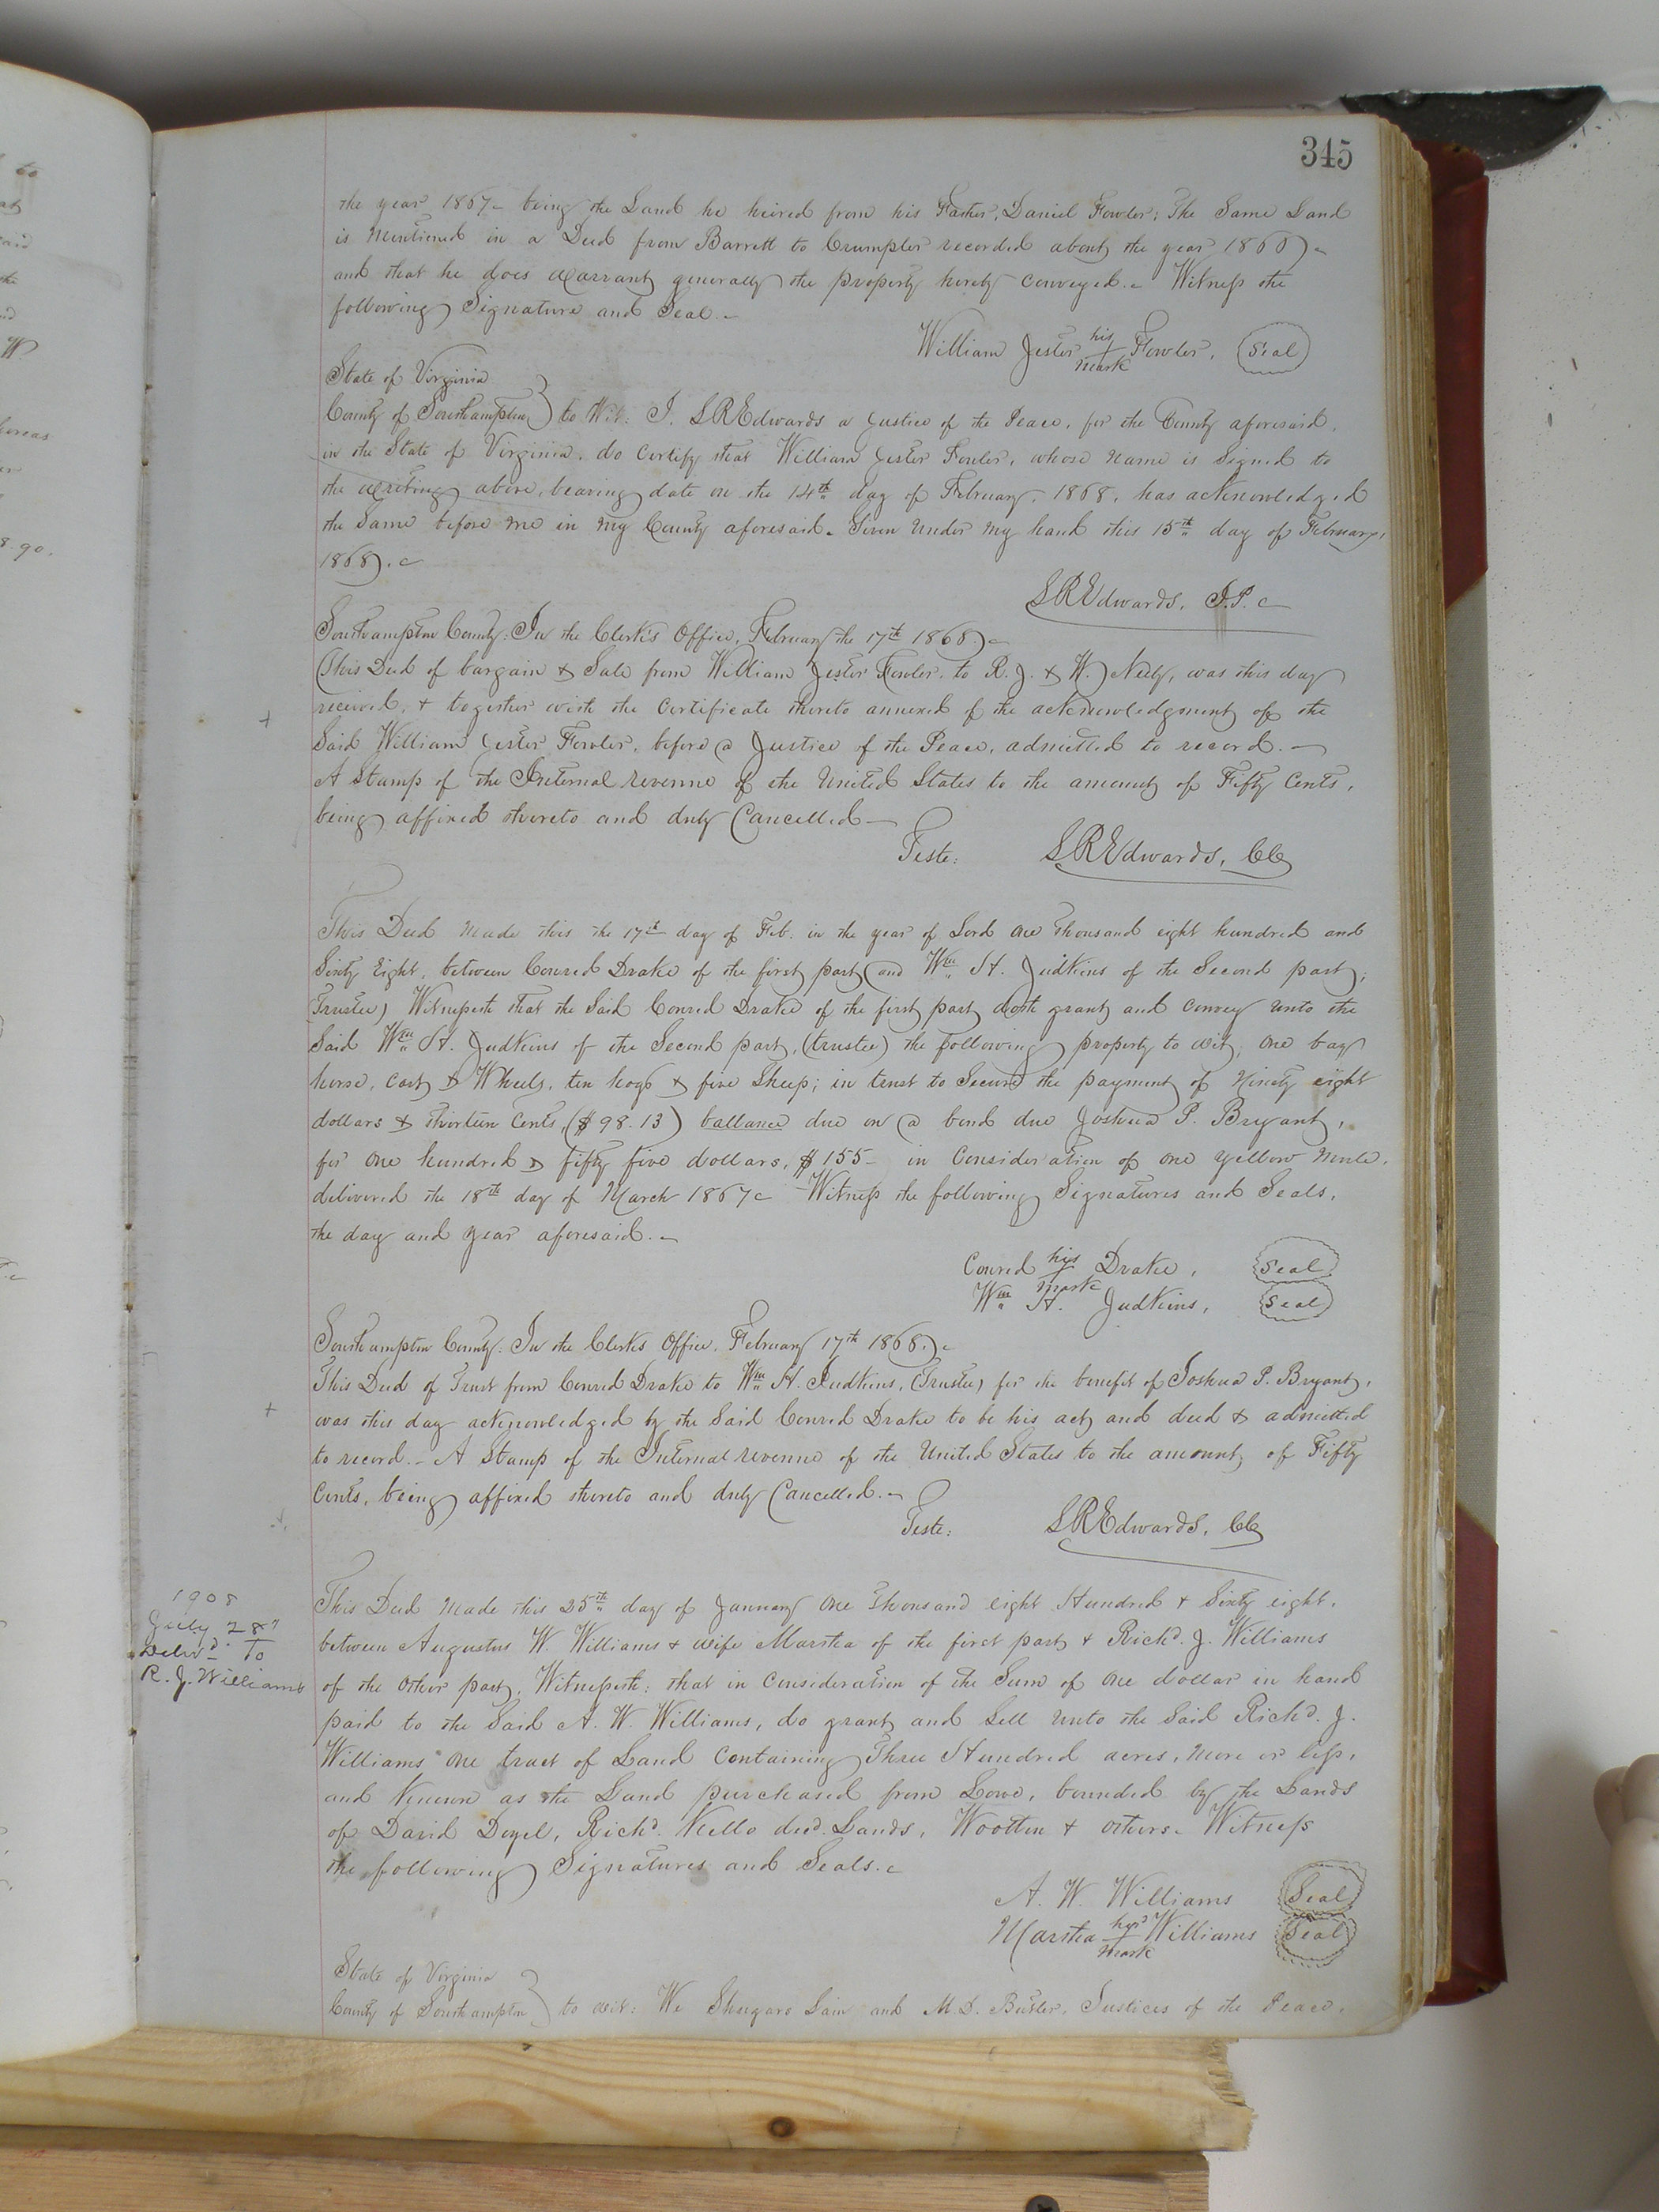 345
the year 1867 - being the Land he heired from his Father, Daniel Fowler; The Same Land
is Mentioned in a Deed from Barrett to Crumpler recorded about the year 1860 -
and that he does warrant generally the property hereby conveyed. - Witness the
following Signature and Seal. -
William Jester his mark Fowler, Seal
State of Virginia
County of Southampton } to Wit: I, L R Edwards a Justice of the Peace, for the County aforesaid,
in the State of Virginia, do Certify that William Jester Fowler, whose name is Signed to
the writing above, bearing date on the 14th day of February, 1868, has acknowledged
the Same before me in my County aforesaid. Given under my hand this 15th day of February,
1868. -
L R Edwards, J.P.
Southampton County: In the Clerk's Office, February the 17th 1868 -
This Deed of bargain & Sale from William Jester Fowler, to R. J. & W. Neely, was this day
received, & together with the Certificate thereto annexed of the acknowledgment of the
Said William Jester Fowler, before a Justice of the Peace, admitted to record. -
A Stamp of the Internal revenue of the United States to the amount of Fifty Cents,
being affixed thereto and duly Cancelled -
Teste: L R Edwards, Clk
This Deed Made this the 17th day of Feb. in the year of Lord One Thousand eight hundred and
Sixty Eight, between Conred Drake of the first part and Wm H. Judkins of the Second part,
(Trustee) Witnesseth that the Said Conred Drake of the first part doth grant and convey unto the
Said Wm H. Judkins of the Second part, (trustee) the following property to wit, One bay
horse, Cart & Wheels, ten hogs & five Sheep; in trust to Secure the payment of Ninety eight
dollars & thirteen Cents, ($98.13) ballance due on a bond due Joshua P. Bryant,
for One hundred & fifty five dollars, $155 - in Consideration of one yellow Mule,
delivered the 18th day of March 1867 - Witness the following Signatures and Seals,
the day and year aforesaid. -
Conred his mark Drake, Seal
Wm H. Judkins, Seal
Southampton County: In the Clerks Office, February 17th 1868. -
This Deed of Trust from Conred Drake to Wm H. Judkins, (Trustee) for the benefit of Joshua P. Bryant,
was this day acknowledged by the Said Conred Drake to be his act and deed & admitted
to record. - A Stamp of the Internal revenue of the United States to the amount of Fifty
Cents, being affixed thereto and duly Cancelled. -
Teste: L R Edwards, Clk
1908
July 28"
Deliv'd. To
R. J. Williams
This Deed Made this 25th day of January One Thousand eight Hundred & Sixty eight,
between Augustus W. Williams & wife Martha of the first part & Richd. J. Williams
of the Other part, Witnesseth: that in Consideration of the Sum of One dollar in hand
paid to the Said A. W. Williams, do grant and Sell unto the Said Richd. J.
Williams One tract of Land Containing Three Hundred acres, More or less,
and Known as the Land purchased from Lowe, bounded by the Lands
of David Doyel, Richd. Kello decd. Lands, Wootten & others. Witness
the following Signatures and Seals. -
A. W. Williams Seal
Martha her mark Williams Seal
State of Virginia
County of Southampton } to wit: We Shugars Lain and M. D. Butler, Justices of the Peace,